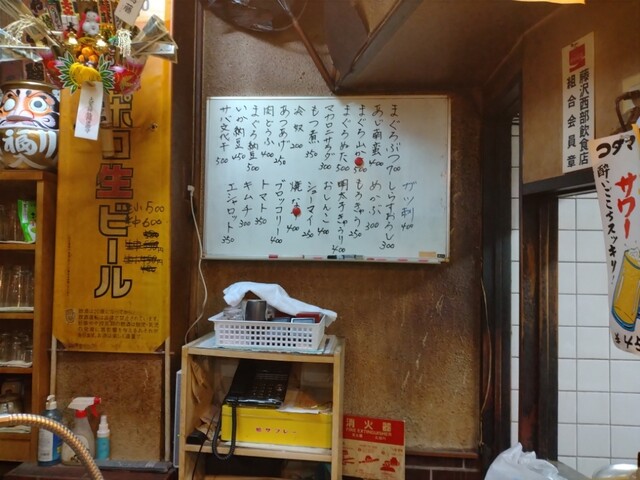 まぐろぶつ 700
あじ南蛮 400
まぐろ山かけ 500
まぐろぬた 500
マカロニサラダ 300
もつ煮 350
冷奴 300
あつあげ 250
肉どうふ 400
まぐろ納豆 500
いか納豆 450
サバ文化干 500
ガツ刺 400
しらすおろし 300
めかぶ 300
もろきゅう 250
明太子きゅうり 400
おしんこ 400
シューマイ 250
焼なす
ブロッコリー 400
トマト 300
キムチ 350
エシャロット 350
ポロ生ビール
小 500
中 600
藤沢西部飲食店
組合会員章
コダマ
サワー
酔いごこちスッキリ!
消火器
FIRE EXTINGUISHER
鳩サブレー
福